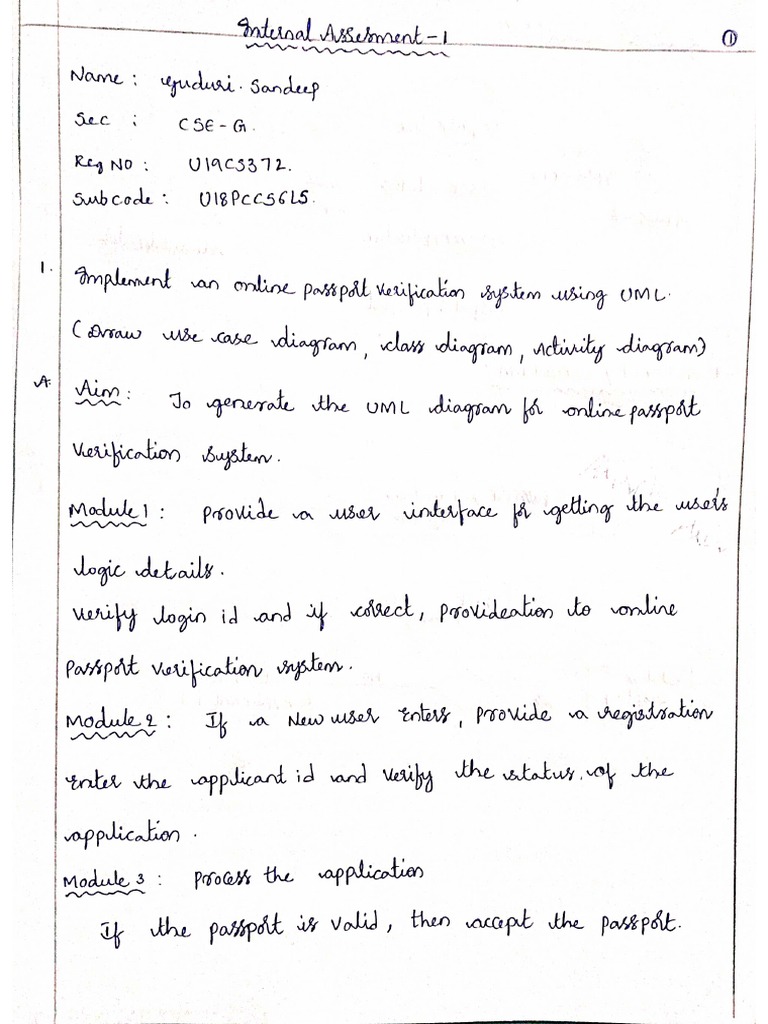 Internal Assesment-1
①
Name : Guduri. Sandeep
Sec : CSE-G.
Reg NO : U19CS372.
Subcode : U18PCCS6L5.
1. Implement an online passport verification system using UML.
(Draw use case diagram, class diagram, Activity diagram)
A. Aim: To generate the UML diagram for online passport
verification system.
Module 1 : Provide a user interface for getting the user's
logic details.
verify login id and if correct, Provideation to online
passport verification system.
Module 2 : If a New user enters, Provide a registration
enter the applicant id and verify the status. of the
application.
Module 3 : Process the application
If the passport is valid, then accept the passport.